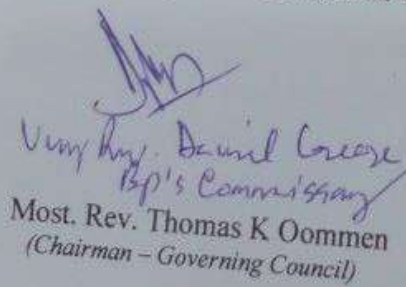 Very Rev. Daniel George
Bp's Commissary
Most. Rev. Thomas K Oommen
(Chairman – Governing Council)